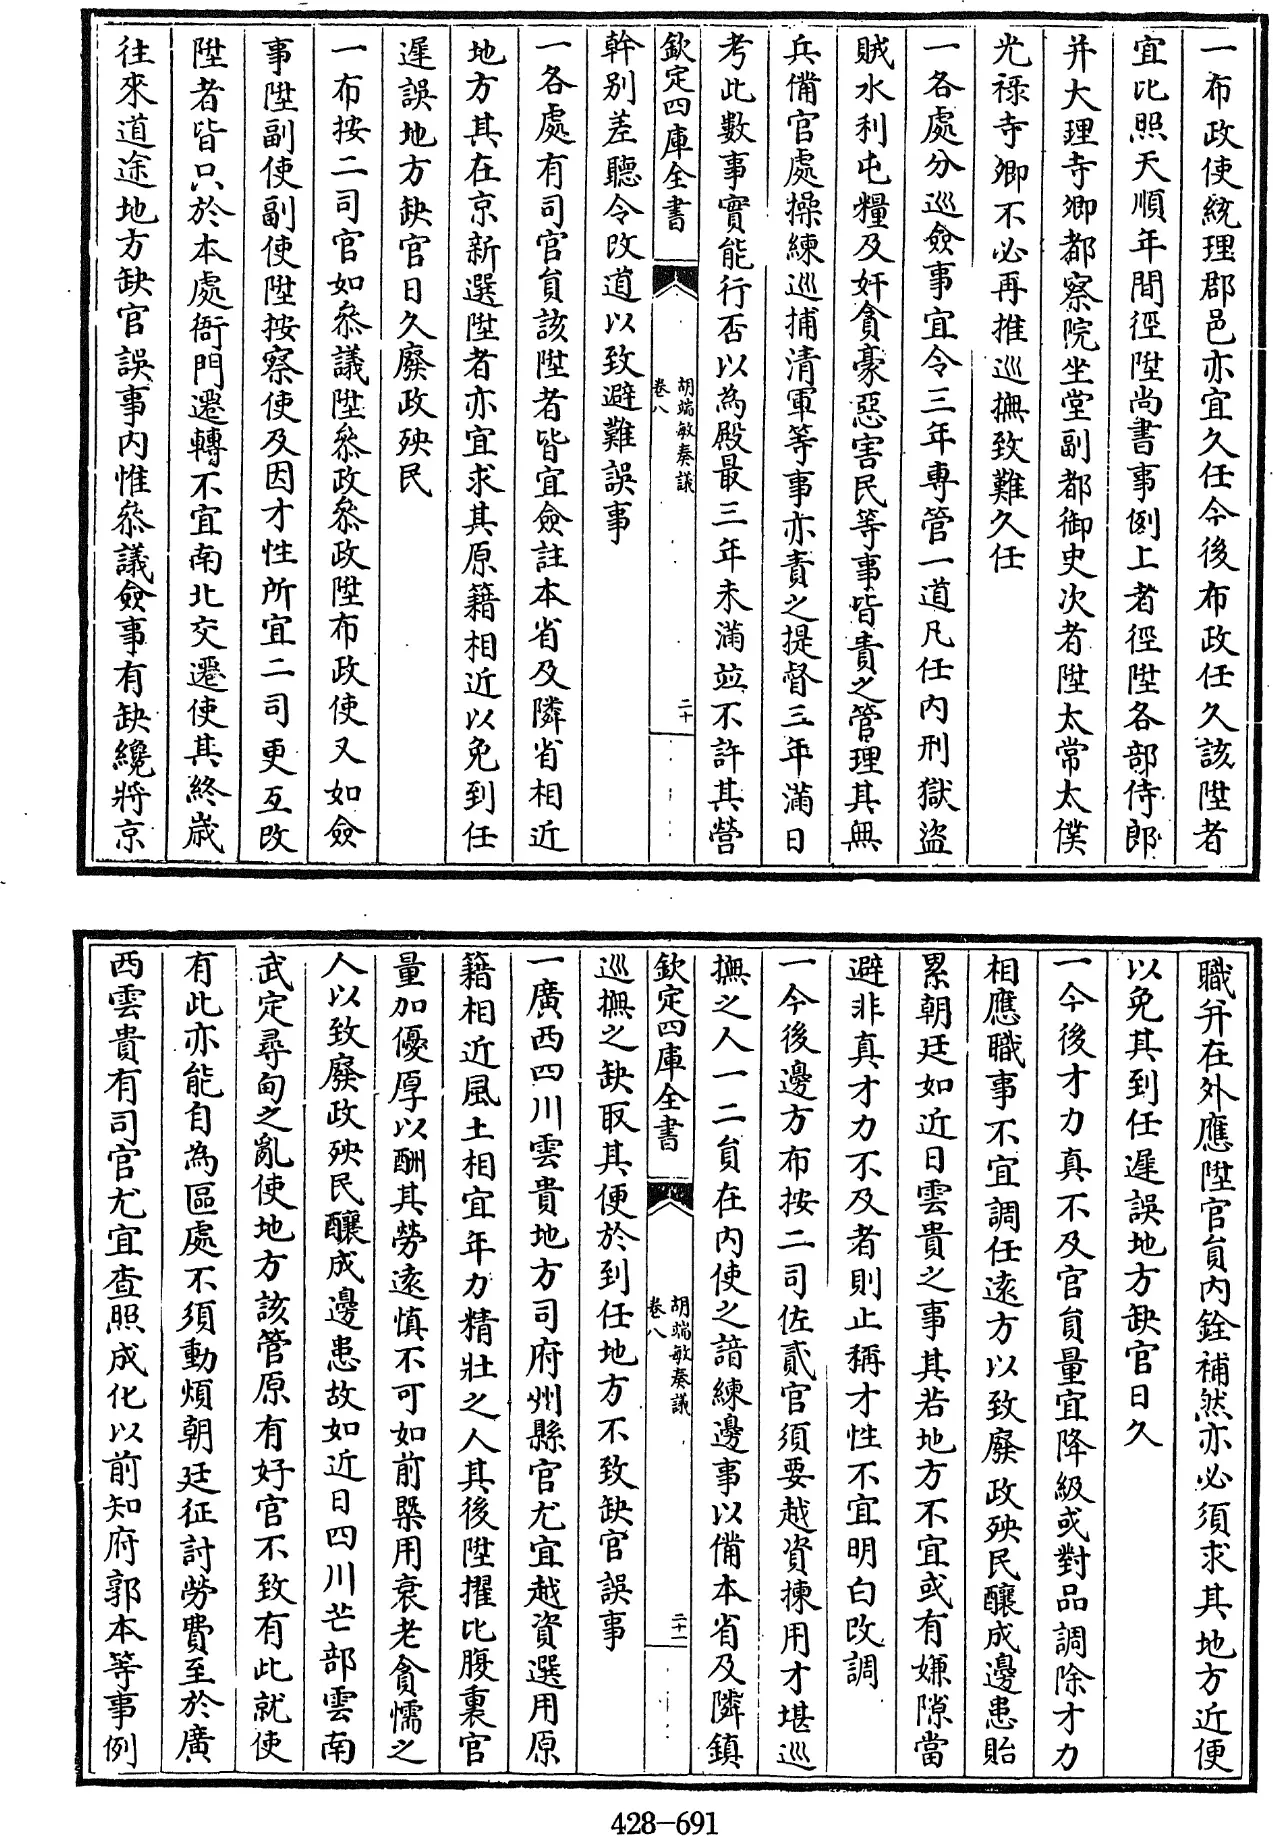 一布政使統理郡邑亦宜久任今後布政任久該陞者
宜比照天順年間徑陞尚書事例上者徑陞各部侍郎
并大理寺卿都察院坐堂副都御史次者陞太常太僕
光祿寺卿不必再推巡撫致難久任
一各處分巡僉事宜令三年專管一道凡任內刑獄盜
賊水利屯糧及奸貪豪惡害民等事皆責之管理其無
兵備官處操練巡捕清軍等事亦責之提督三年滿日
考此數事實能行否以為殿最三年未滿並不許其營
欽定四庫全書
胡端敏奏議
卷八
二十
幹別差聽令改道以致避難誤事
一各處有司官員該陞者皆宜僉註本省及隣省相近
地方其在京新選陞者亦宜求其原籍相近以免到任
遲誤地方缺官日久廢政殃民
一布按二司官如叅議陞叅政叅政陞布政使又如僉
事陞副使副使陞按察使及因才性所宜二司更互改
陞者皆只於本處衙門遷轉不宜南北交遷使其終歲
往來道途地方缺官誤事內惟叅議僉事有缺纔將京
職并在外應陞官員內銓補然亦必須求其地方近便
以免其到任遲誤地方缺官日久
一今後才力真不及官員量宜降級或對品調除才力
相應職事不宜調任遠方以致廢政殃民釀成邊患貽
累朝廷如近日雲貴之事其若地方不宜或有嫌隙當
避非真才力不及者則止稱才性不宜明白改調
一今後邊方布按二司佐貳官須要越資揀用才堪巡
撫之人一二員在內使之諳練邊事以備本省及隣鎮
欽定四庫全書
胡端敏奏議
卷八
二十一
巡撫之缺取其便於到任地方不致缺官誤事
一廣西四川雲貴地方司府州縣官尤宜越資選用原
籍相近風土相宜年力精壯之人其後陞擢比腹裏官
量加優厚以酬其勞遠慎不可如前槩用衰老貪懦之
人以致廢政殃民釀成邊患故如近日四川芒部雲南
武定尋甸之亂使地方該管原有好官不致有此就使
有此亦能自為區處不須動煩朝廷征討勞費至於廣
西雲貴有司官尤宜查照成化以前知府郭本等事例
428-691